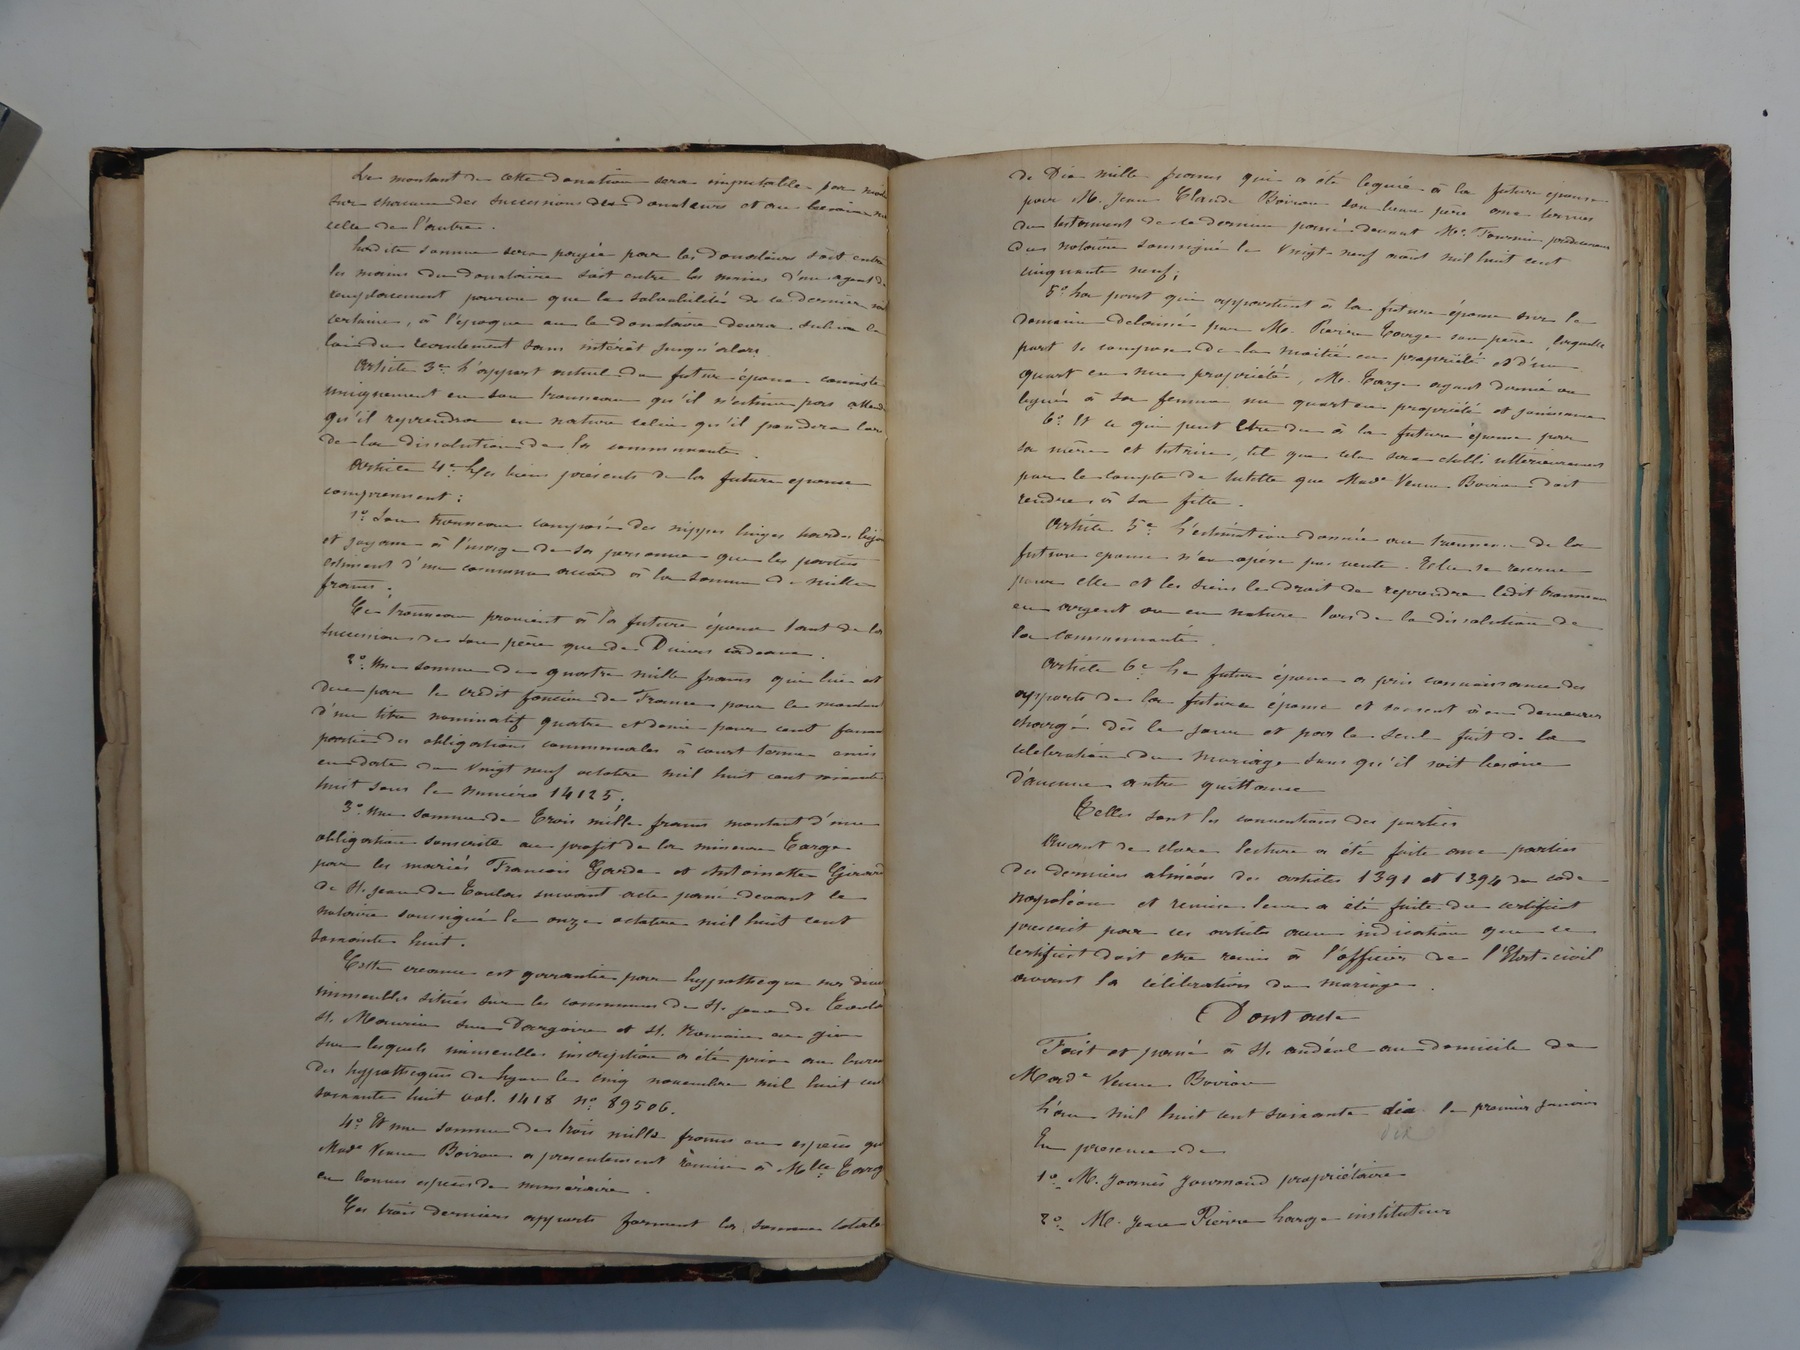 Le montant de cette donation sera imputable par moitié
sur chacune des successions des donateurs et au besoin sur
celle de l'autre.
Ladite somme sera payée par les donateurs soit entre
les mains du donataire soit entre les mains d'un agent de
remplacement pourvu que la solvabilité de ce dernier soit
certaine, à l'époque ou le donataire devra subir la
loi du recrutement sans intérêt jusqu'alors.
Article 3e L'apport actuel du futur époux consiste
uniquement en son trousseau qu'il n'estime pas attendu
qu'il reprendra en nature celui qu'il possédera lors
de la dissolution de la communauté.
Article 4e Les biens présents de la future epouse
comprennent :
1o Son trousseau composé des nippes linges hardes bijoux
et joyaux à l'usage de sa personne que les parties
estiment d'un commun accord à la somme de mille
francs.
Ce trousseau provient à la future épouse tant de la
succession de son père que de Divers cadeaux.
2o Une somme de quatre mille francs qui lui est
due par le crédit foncier de France pour le montant
d'un titre nominatif quatre et demi pour cent faisant
partie des obligations communales à court terme émis
en date du Vingt neuf octobre mil huit cent soixante
huit sous le numéro 14125;
3o Une somme de Trois mille francs montant d'une
obligation souscrite au profit de la mineure Targe
par les mariés Francois Garde et Antoinette Girard
de St. Jean de Toulas suivant acte passé devant le
notaire soussigné le onze octobre mil huit cent
soixante huit.
Cette creance est garantie par hypothèque sur divers
immeubles situés sur les communes de St. Jean de Toulas
St. Maurice sur Dargoire et St. Romain en gier
sur lesquels immeubles inscription a été prise au bureau
des hypothèques de Lyon le cinq novembre mil huit cent
soixante huit vol. 1418 no. 89506.
4o Et une somme de trois mille francs en espèces que
Made Veuve Boiron a presentement remise à Mlle Targe
en bonnes espèces de numéraire.
Ces trois derniers apports forment la somme totale
de Dix mille francs qui a été leguée à la future épouse
par M. Jean Claude Boiron son beau père aux termes
du testament de ce dernier passé devant Me. Fournier prédécesseur
du notaire soussigné le Vingt neuf août mil huit cent
cinquante neuf;
5o La part qui appartient à la future épouse sur le
domaine delaissé par M. Pierre Targe son père, laquelle
part se compose de la moitié en propriété et d'un
quart en nue propriété, M. Targe ayant donné ou
legué à sa femme un quart en propriété et jouissance
6o Et ce qui peut être du à la future épouse par
sa mère et tutrice, tel que cela sera etabli ultérieurement
par le compte de tutelle que Made Veuve Boiron doit
rendre à sa fille.
Article 5e L'estimation donnée au trousseau de la
future epouse n'en opère pas vente. Elle se reserve
pour elle et les siens le droit de reprendre ledit trousseau
en argent ou en nature lors de la dissolution de
la communauté.
Article 6e Le futur époux a pris connaissance des
apports de la future épouse et consent à en demeurer
chargé dès le jour et par le seul fait de la
célébration du mariage sans qu'il soit besoin
d'aucune autre quittance
Telles sont les conventions des parties
Avant de clore lecture a été faite aux parties
des derniers alinéas des articles 1391 et 1394 du code
napoléon et remise leur a été faite du certificat
prescrit par ces articles avec indication que ce
certificat doit etre remis à l'officier de l'Etat-civil
avant la célébration du mariage.
Dont acte
Fait et passé à St. andéol au domicile de
Made Veuve Boiron
L'an mil huit cent soixante dix le premier Janvier
dix
En presence de
1o. M. Joanès Journoud propriétaire
2o. M. Jean Pierre Large instituteur